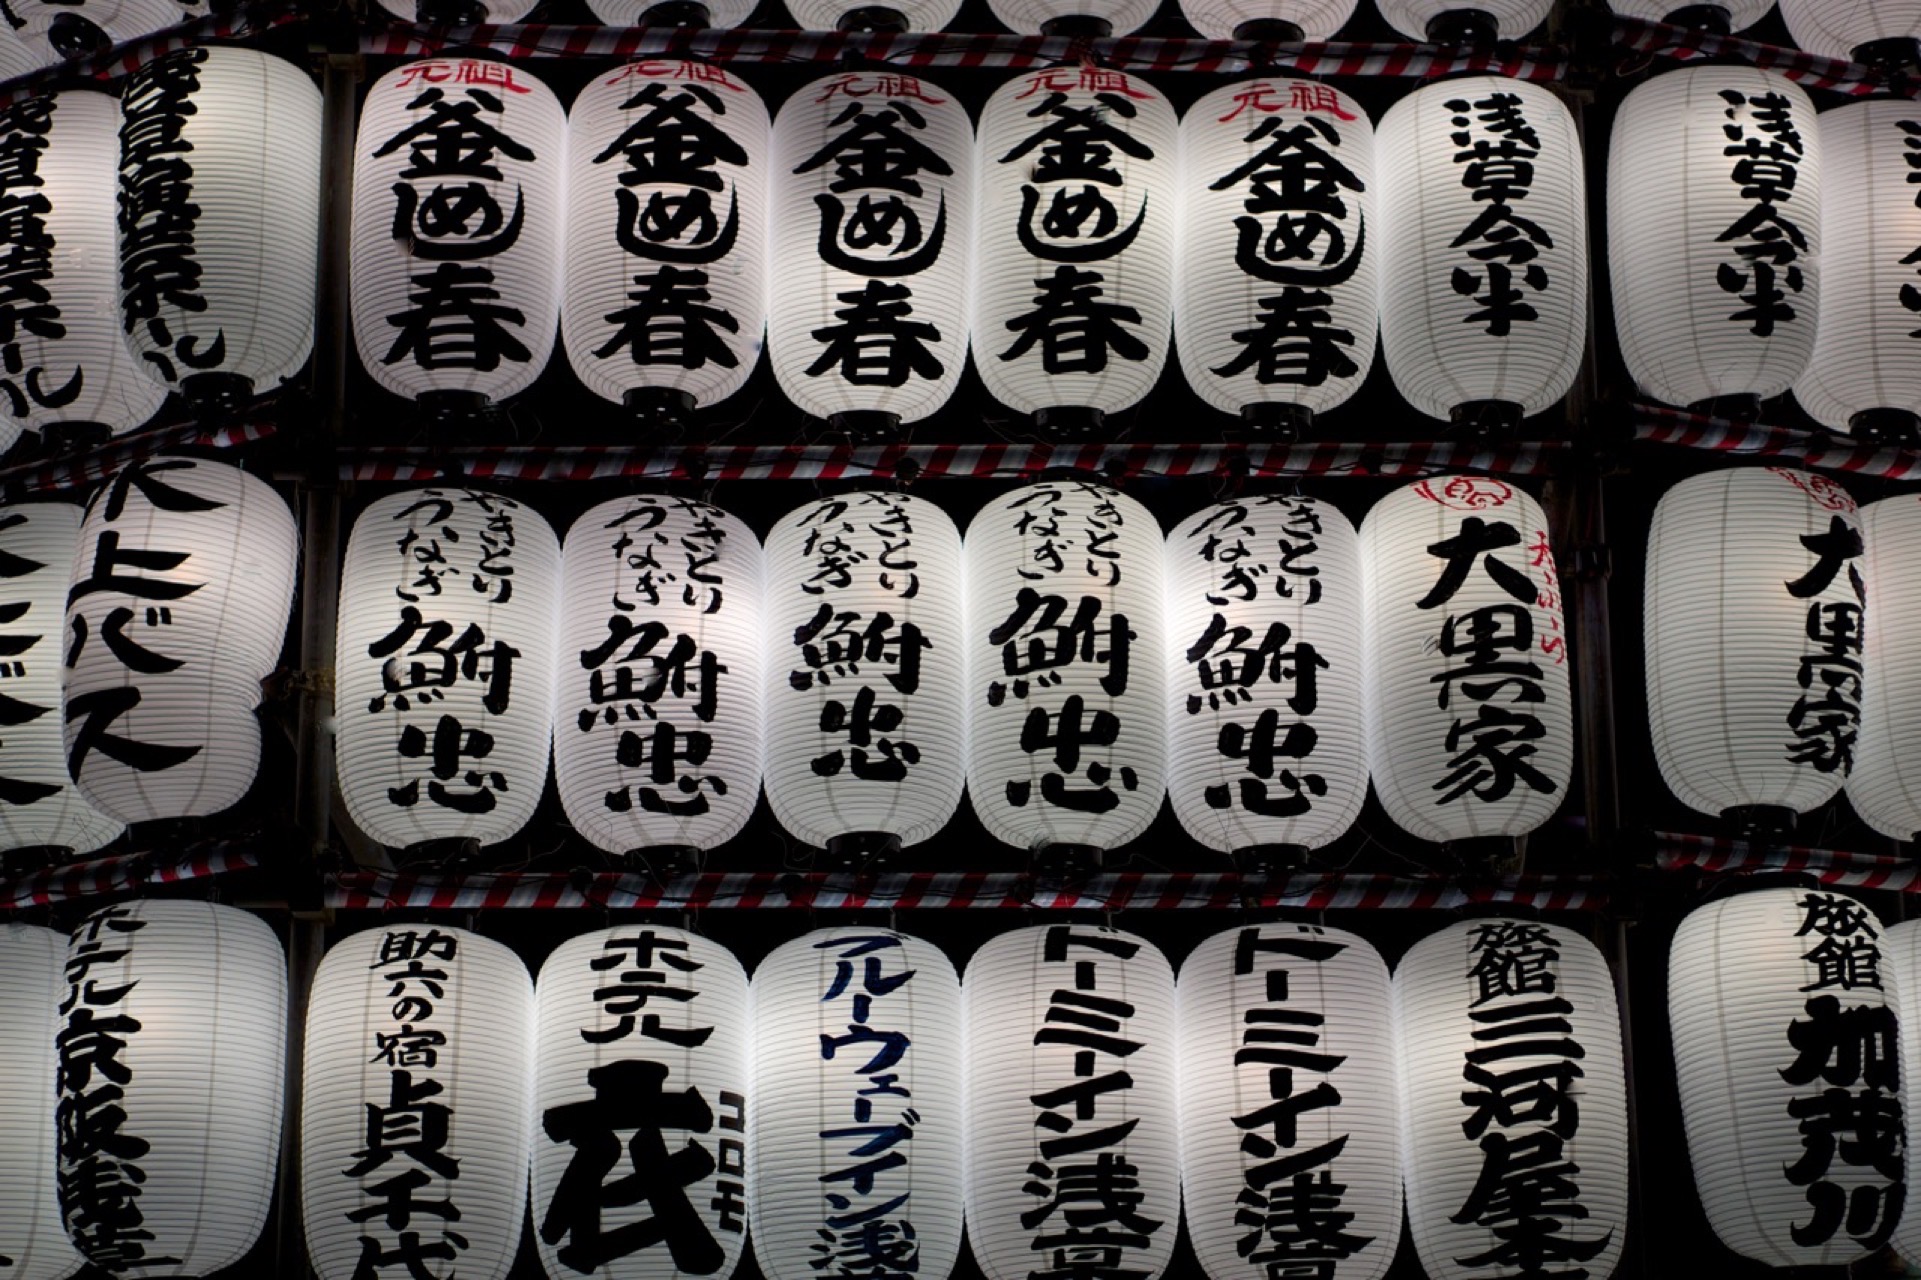 浅草演芸ホール
元祖
釜めし
春
元祖
釜めし
春
元祖
釜めし
春
元祖
釜めし
春
元祖
釜めし
春
浅草今半
浅草今半
水上バス
やきとり
うなぎ
鮒忠
やきとり
うなぎ
鮒忠
やきとり
うなぎ
鮒忠
やきとり
うなぎ
鮒忠
やきとり
うなぎ
鮒忠
大黒家
大黒家
ホテル京阪浅草
助六の宿
貞千代
ホテル
衣
コロモ
ブルーウェーブイン浅草
ドーミーイン浅草
ドーミーイン浅草
旅館
三河屋本
旅館
加茂川